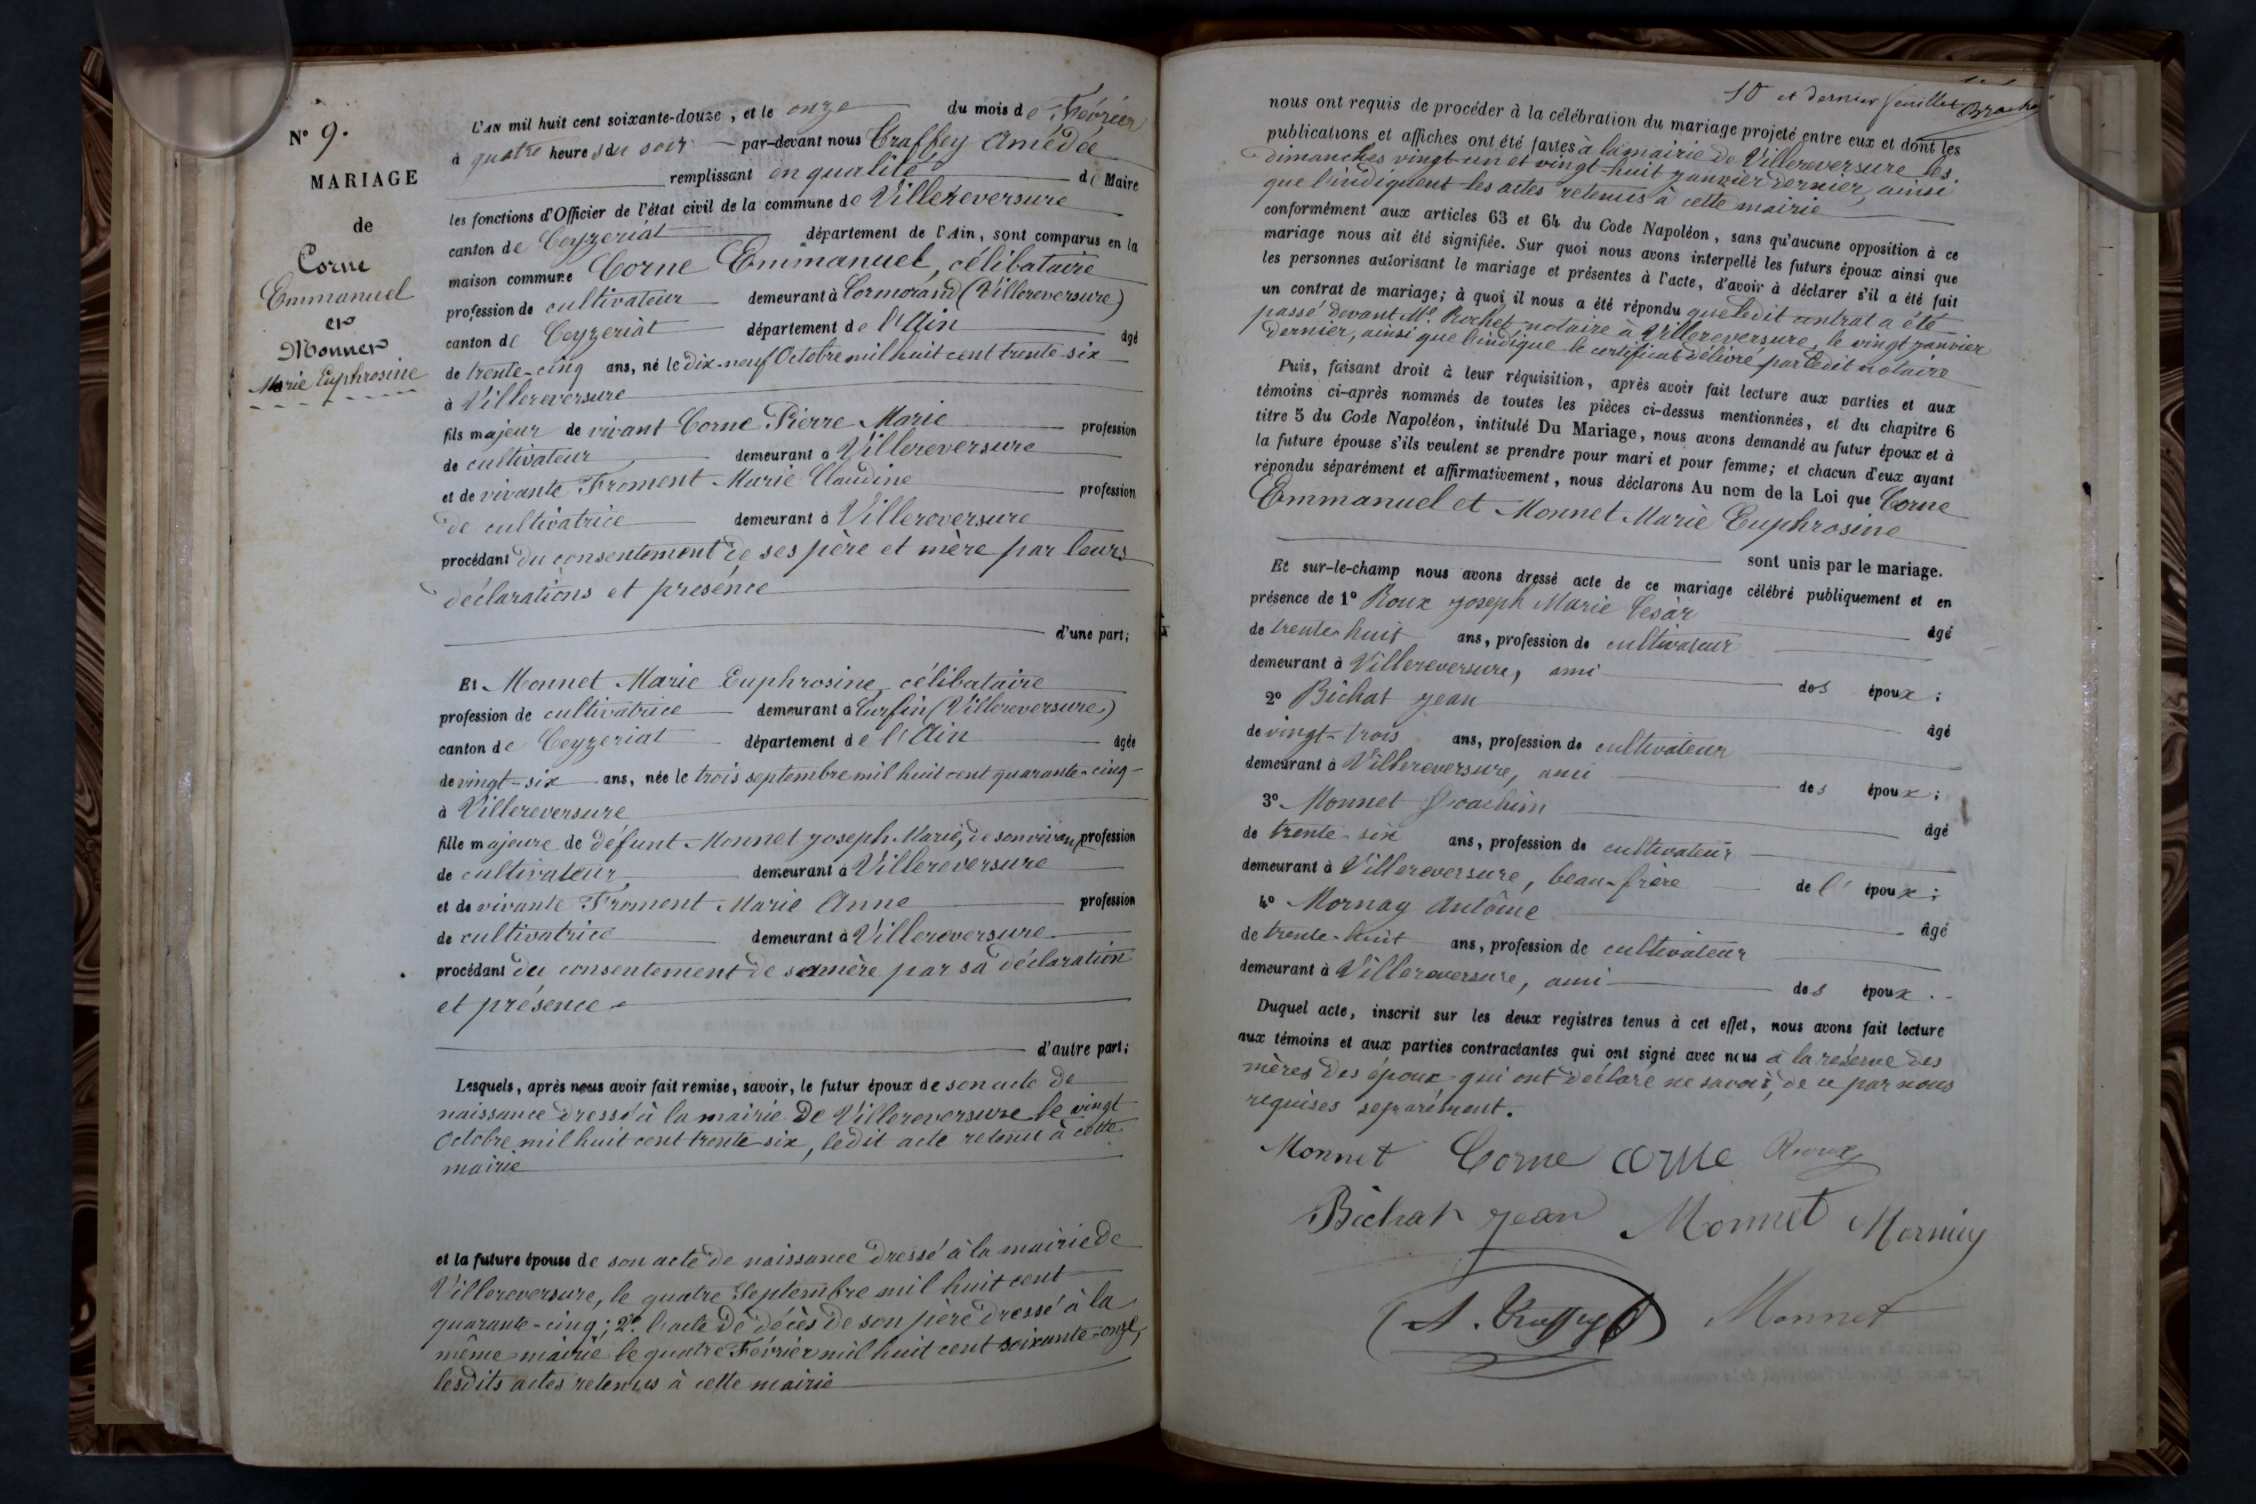 N° 9.
MARIAGE
de
Corne
Emmanuel
et
Monnet
Marie Euphrosine
L'AN mil huit cent soixante-douze, et le onze du mois de Février
à quatre heures du soir par-devant nous Traffey Amédée
remplissant en qualité de Maire
les fonctions d'Officier de l'état civil de la commune de Villereversure
canton de Ceyzeriat département de l'Ain, sont comparus en la
maison commune Corne Emmanuel, célibataire
profession de cultivateur demeurant à Cormorand (Villereversure)
canton de Ceyzeriat département de l'Ain âgé
de trente-cinq ans, né le dix-neuf Octobre mil huit cent trente-six
à Villereversure
fils majeur de vivant Corne Pierre Marie profession
de cultivateur demeurant à Villereversure
et de vivante Froment Marie Claudine profession
de cultivatrice demeurant à Villereversure
procédant du consentement de ses père et mère par leurs
déclarations et présence
d'une part;
Et Monnet Marie Euphrosine, célibataire
profession de cultivatrice demeurant à Turfin (Villereversure)
canton de Ceyzeriat département de l'Ain âgée
de vingt-six ans, née le trois septembre mil huit cent quarante-cinq
à Villereversure
fille majeure de défunt Monnet Joseph Marie, de son vivant profession
de cultivateur demeurant à Villereversure
et de vivante Froment Marie Anne profession
de cultivatrice demeurant à Villereversure
procédant du consentement de sa mère par sa déclaration
et présence
d'autre part;
Lesquels, après nous avoir fait remise, savoir, le futur époux de son acte de
naissance dressé à la mairie de Villereversure le vingt
Octobre mil huit cent trente-six, ledit acte retenu à cette
mairie
et la future épouse de son acte de naissance dressé à la mairie de
Villereversure, le quatre Septembre mil huit cent
quarante-cinq; 2° l'acte de décès de son père dressé à la
même mairie le quatre Février mil huit cent soixante-onze,
lesdits actes retenus à cette mairie
10 et dernier feuillet
nous ont requis de procéder à la célébration du mariage projeté entre eux et dont les
publications et affiches ont été faites à la mairie de Villereversure les
dimanches vingt-un et vingt-huit janvier dernier, ainsi
que l'indiquent les actes retenus à cette mairie
conformément aux articles 63 et 64 du Code Napoléon, sans qu'aucune opposition à ce
mariage nous ait été signifiée. Sur quoi nous avons interpellé les futurs époux ainsi que
les personnes autorisant le mariage et présentes à l'acte, d'avoir à déclarer s'il a été fait
un contrat de mariage; à quoi il nous a été répondu que ledit contrat a été
passé devant Me Rochet, notaire à Villereversure, le vingt janvier
dernier, ainsi que l'indique le certificat délivré par ledit notaire
Puis, faisant droit à leur réquisition, après avoir fait lecture aux parties et aux
témoins ci-après nommés de toutes les pièces ci-dessus mentionnées, et du chapitre 6
titre 5 du Code Napoléon, intitulé Du Mariage, nous avons demandé au futur époux et à
la future épouse s'ils veulent se prendre pour mari et pour femme; et chacun d'eux ayant
répondu séparément et affirmativement, nous déclarons Au nom de la Loi que Corne
Emmanuel et Monnet Marie Euphrosine
sont unis par le mariage.
Et sur-le-champ nous avons dressé acte de ce mariage célébré publiquement et en
présence de 1° Roux Joseph Marie Cesàr âgé
de trente huit ans, profession de cultivateur
demeurant à Villereversure, ami des époux;
2° Bichat Jean âgé
de vingt-trois ans, profession de cultivateur
demeurant à Villereversure, ami des époux;
3° Monnet Joachim âgé
de trente-six ans, profession de cultivateur
demeurant à Villereversure, beau-frère de l'époux;
4° Mornay Antoine âgé
de trente-huit ans, profession de cultivateur
demeurant à Villereversure, ami des époux.
Duquel acte, inscrit sur les deux registres tenus à cet effet, nous avons fait lecture
aux témoins et aux parties contractantes qui ont signé avec nous à la réserve des
mères des époux qui ont déclaré ne savoir, de ce par nous
requises séparément.
Monnet Corne corne Roux
Bichat Jean Monnet Mornay
A. Traffey Monnet